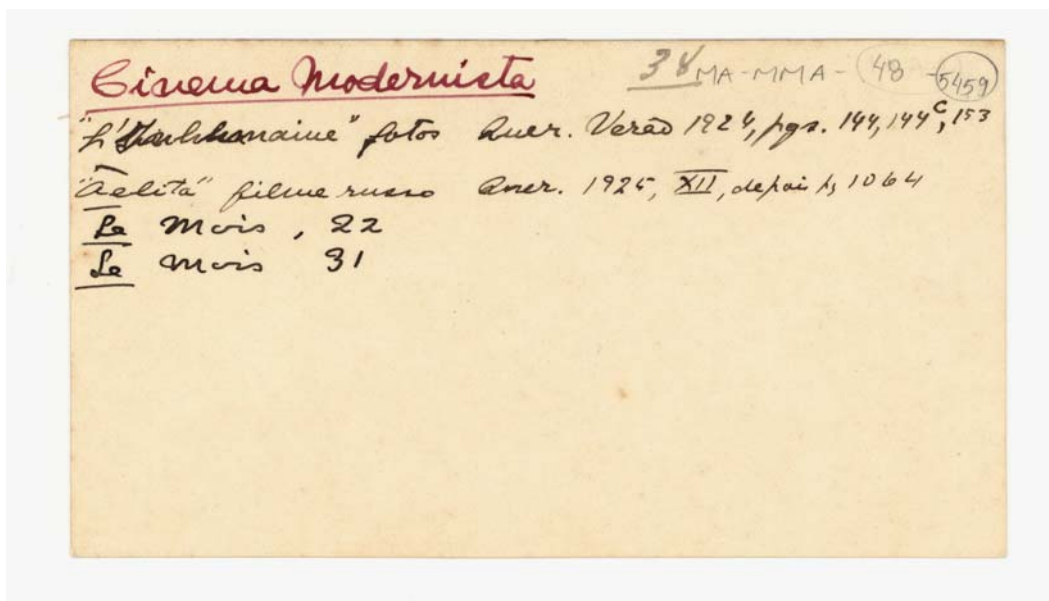 Cinema Modernista 38 MA-MMA-48-5459
"L'Inhumaine" fotos Quer. Verão 1924, pgs. 144, 144c, 153
"Aelita" filme russo Quer. 1925, XII, depois p, 1064
Le Mois, 22
Le Mois 31